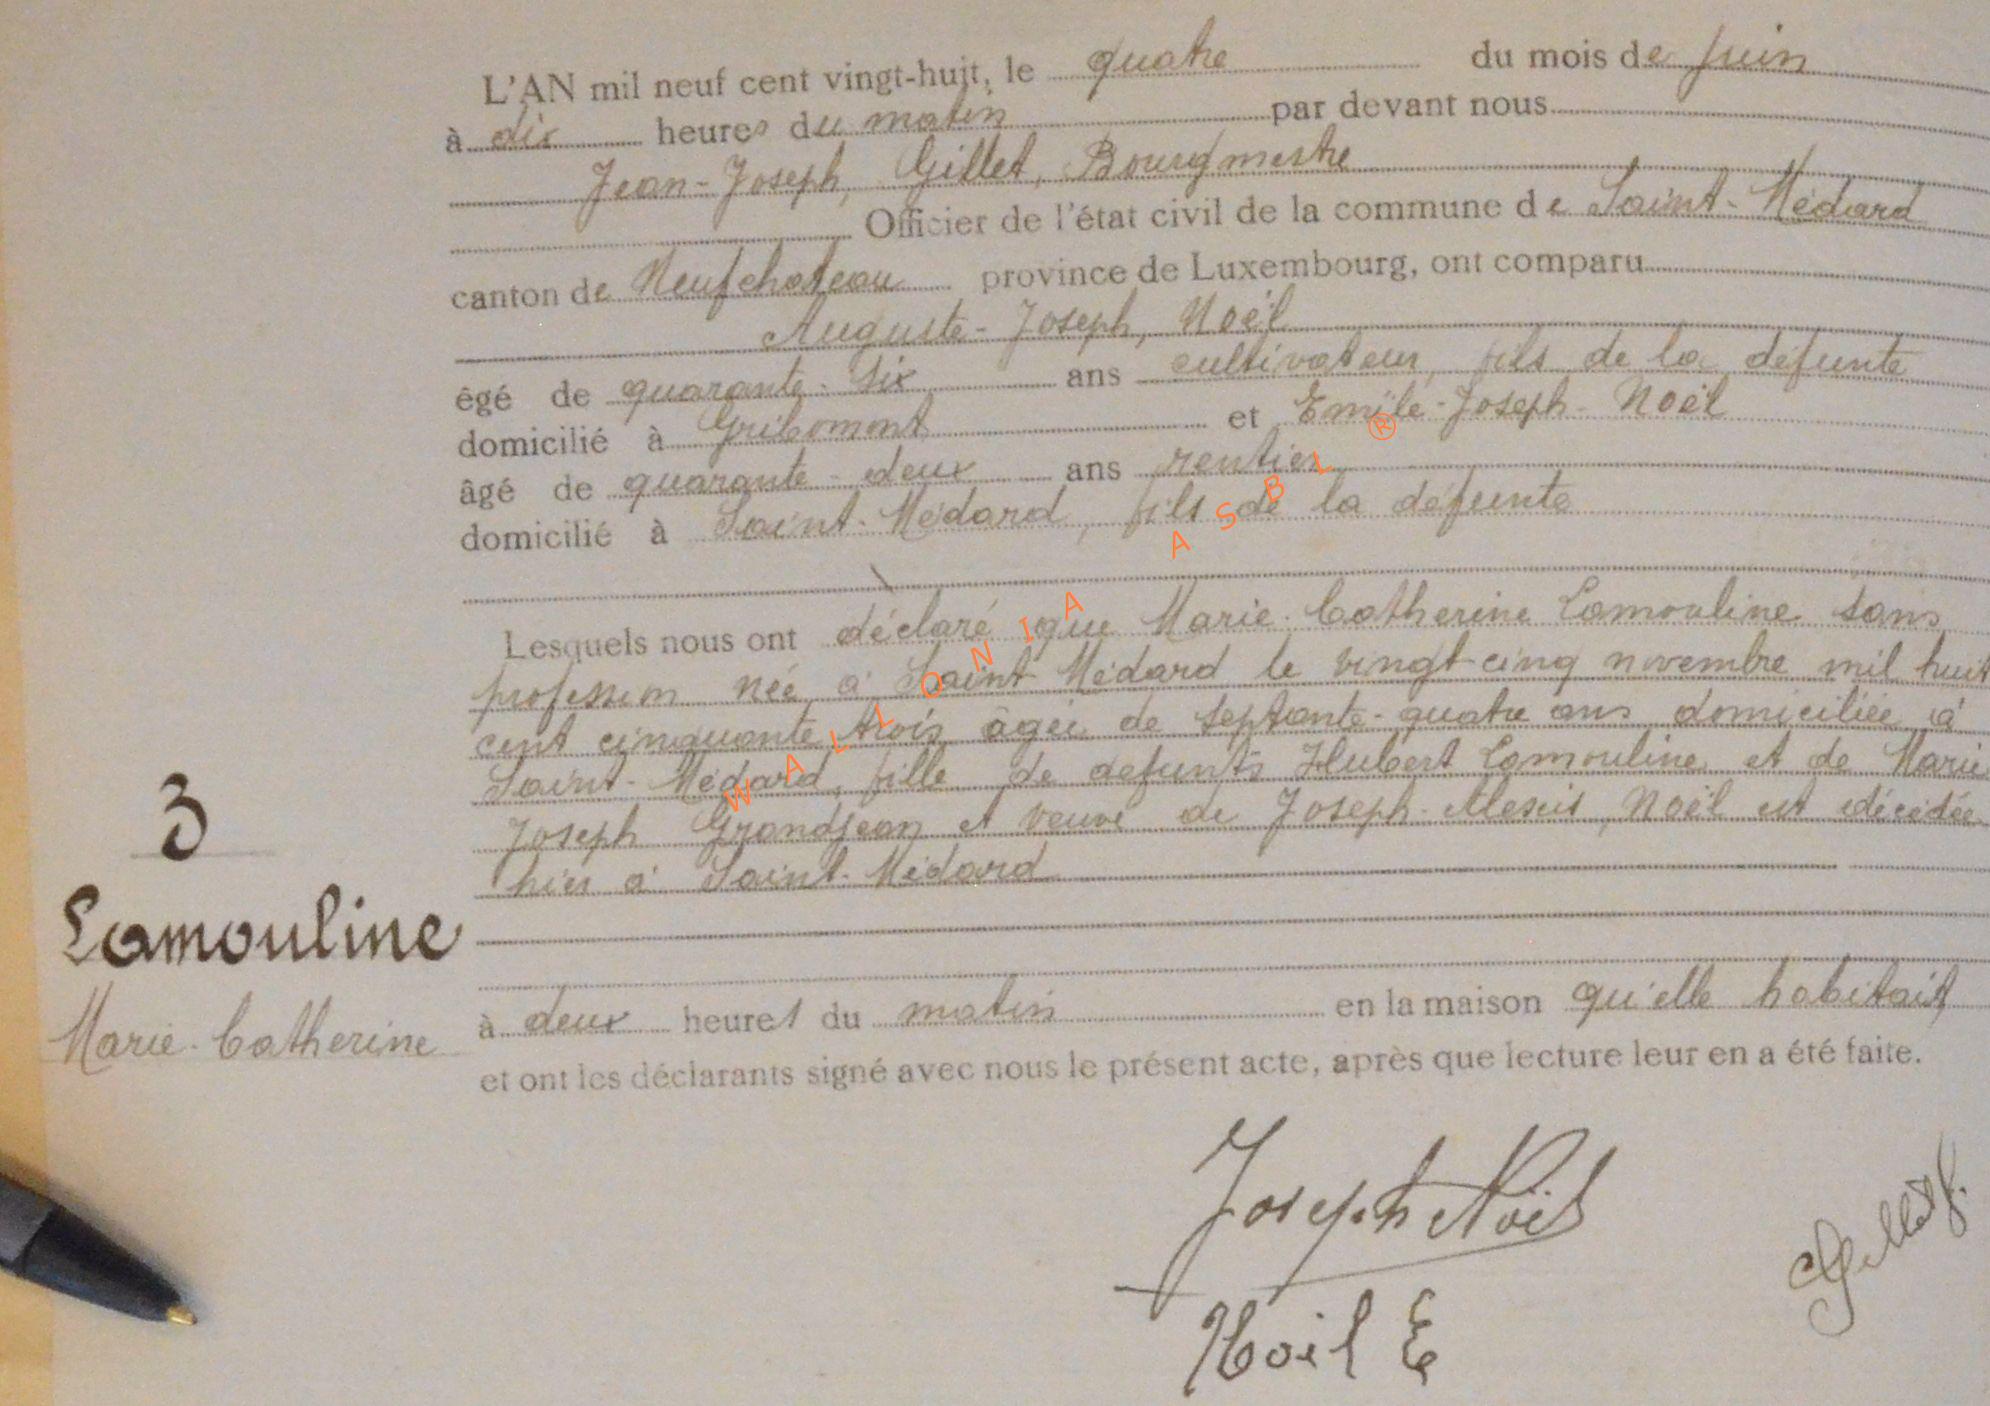 L'AN mil neuf cent vingt-huit, le quatre du mois de juin
à dix heures du matin par devant nous
Jean-Joseph, Gillet, Bourgmestre
Officier de l'état civil de la commune de Saint-Médard
canton de Neufchateau province de Luxembourg, ont comparu
Auguste-Joseph, Noël
êgé de quarante-six ans cultivateur, fils de la défunte
domicilié à Gribomont et Emile-Joseph-Noël
âgé de quarante-deux ans rentier
domicilié à Saint-Médard, fils de la défunte
Lesquels nous ont déclaré que Marie-Catherine Lamouline sans
profession née à Saint-Médard le vingt-cinq novembre mil huit
cent cinquante trois âgée de septante-quatre ans domiciliée à
Saint-Médard, fille de défunts Hubert Lamouline et de Marie
Joseph Grandjean et veuve de Joseph-Alexis, Noël est décédée
hier à Saint-Médard
3
Lamouline
Marie-Catherine
à deux heures du matin en la maison qu'elle habitait
et ont les déclarants signé avec nous le présent acte, après que lecture leur en a été faite.
Joseph Noël
Gillet J.
Noël E
WALLONIA ASBL ®